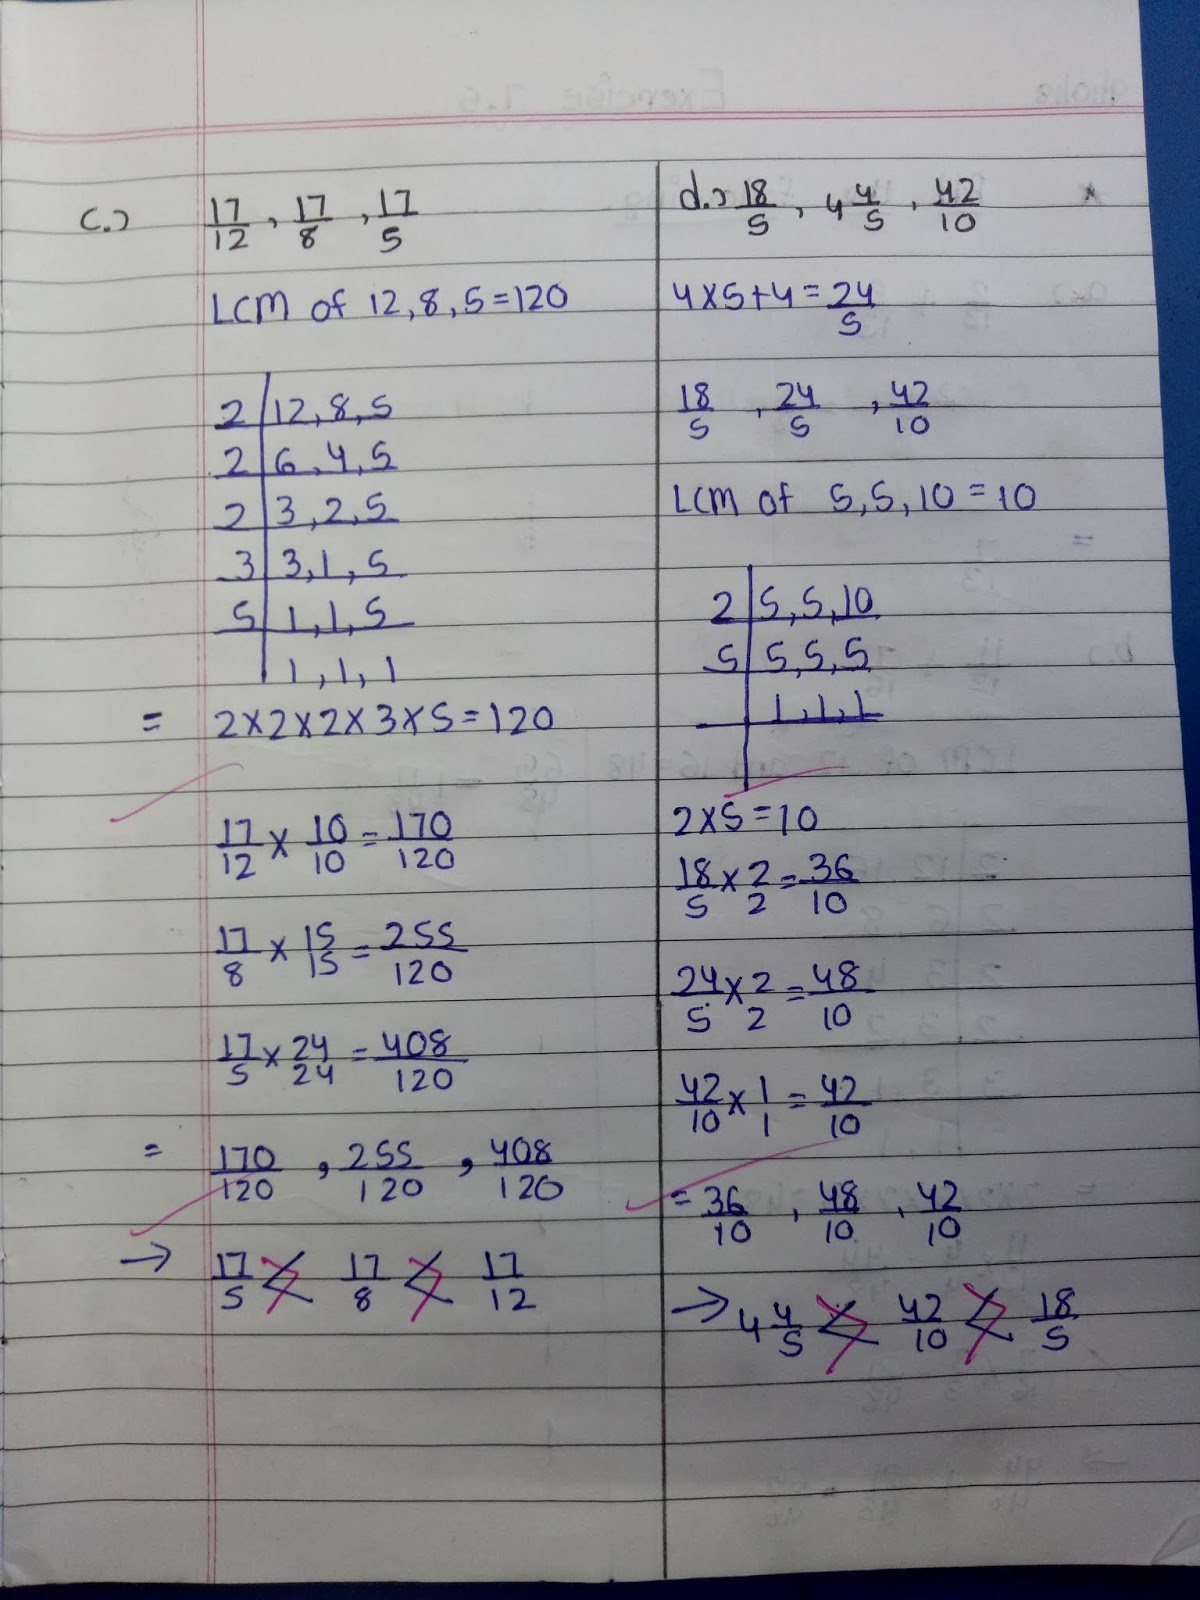 c.) 17/12 , 17/8 , 17/5
LCM of 12, 8, 5 = 120
2 | 12, 8, 5
2 | 6, 4, 5
2 | 3, 2, 5
3 | 3, 1, 5
5 | 1, 1, 5
| 1, 1, 1
= 2×2×2×3×5=120
17/12 × 10/10 = 170/120
17/8 × 15/15 = 255/120
17/5 × 24/24 = 408/120
= 170/120 , 255/120 , 408/120
→ 17/5 < 17/8 < 17/12
d.) 18/5 , 4 4/5 , 42/10
4×5+4 = 24/5
18/5 , 24/5 , 42/10
LCM of 5, 5, 10 = 10
2 | 5, 5, 10
5 | 5, 5, 5
| 1, 1, 1
2×5=10
18/5 × 2/2 = 36/10
24/5 × 2/2 = 48/10
42/10 × 1/1 = 42/10
= 36/10 , 48/10 , 42/10
→ 4 4/5 < 42/10 < 18/5